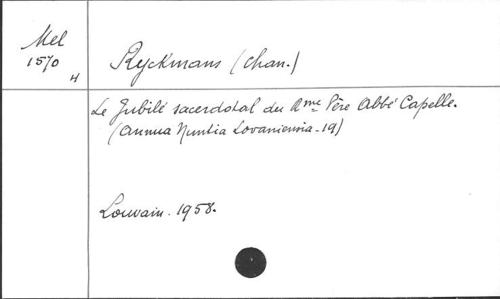 Mel
1570
4
Ryckmans (Chan.)
Le Jubilé sacerdotal du Rme Père Abbé Capelle.
(Annua Nuntia Lovaniensia - 19)
Louvain. 1958.